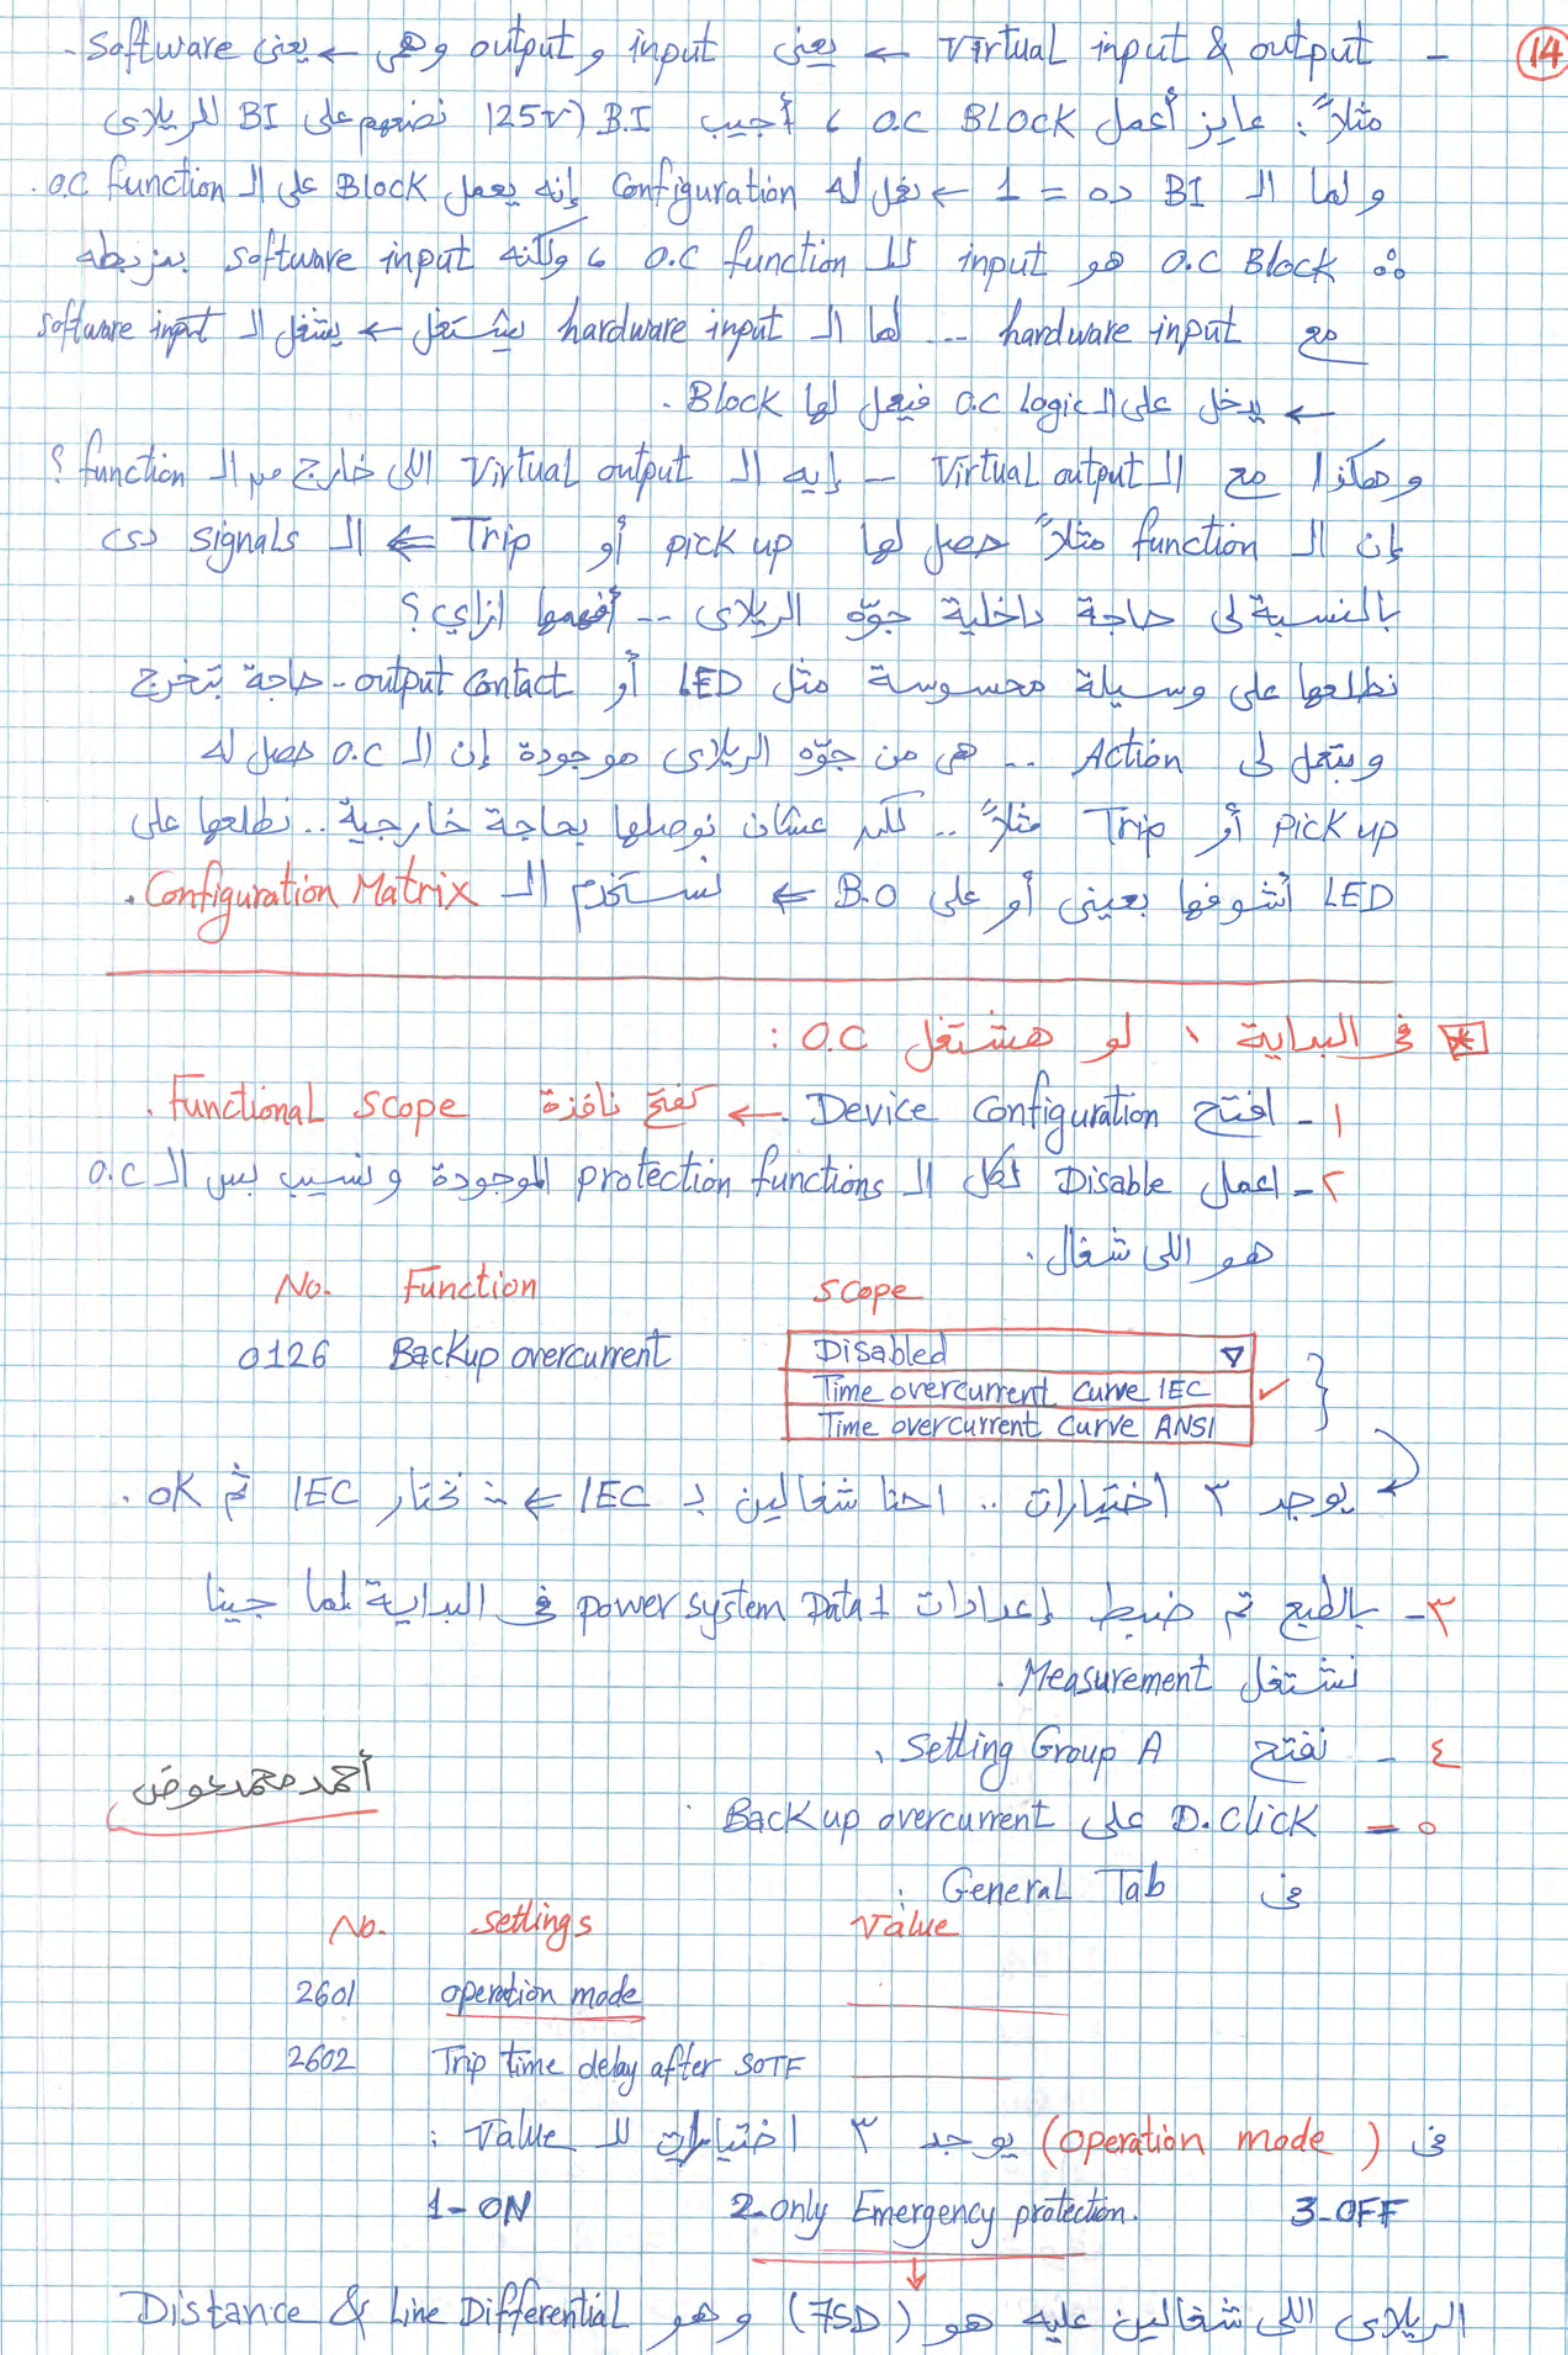 14
- Virtual input & output ← يعنى input و output وهى ← يعنى software -
مثلاً : عايز أعمل O.C BLOCK ، أجيب B.I (125V نضعهم على BI للريلاى
و لما الـ BI ده = 1 ← نعمل له Configuration إنه يعمل Block على الـ O.C function .
∴ O.C Block هو input للـ O.C function ، ولكنه software input بنربطه
مع hardware input ... لما الـ hardware input يشتغل ← يشغل الـ software input
← يدخل على الـ O.C Logic فيعمل لها Block .
وهكذا مع الـ Virtual output - إيه الـ Virtual output اللى خارج من الـ function ؟
إن الـ function مثلاً حصل لها pick up أو Trip ⇐ الـ signals دى
بالنسبة لى حاجة داخلية جوّه الريلاى .. أفهمها ازاي ؟
نطلعها على وسيلة محسوسة مثل LED أو output contact - حاجة بتخرج
وبتعمل لى Action .. هى من جوّه الريلاى موجودة إن الـ O.C حصل له
pick up أو Trip مثلاً .. لكن عشان نوصلها بحاجة خارجية .. نطلعها على
LED أشوفها بعينى أو على B.O ⇐ نستخدم الـ Configuration Matrix .
* فى البداية ، لو هشتغل O.C :
١ - افتح Device Configuration ← تفتح نافذة Functional Scope .
٢ - اعمل Disable لكل الـ protection functions الموجودة ونسيب بس الـ O.C
هو اللى شغال .
No. Function Scope
0126 Backup overcurrent Disabled ▽
Time overcurrent curve IEC ✓
Time overcurrent curve ANSI
يوجد ٣ اختيارات .. احنا شغالين بـ IEC ⇐ ∴ نختار IEC ثم OK .
٣ - بالطبع تم ضبط إعدادات power system Data 1 فى البداية لما جينا
نشتغل Measurement .
٤ - نفتح Setting Group A .
أحمد محمد عوض
٥ - D. Click على Backup overcurrent
فى General Tab :
No. settings Value
2601 operation mode
2602 Trip time delay after SOTF
فى ( operation mode ) يوجد ٣ اختيارات للـ Value :
1- ON 2- only Emergency protection. 3- OFF
الريلاى اللى شغالين عليه هو (7SD) وهو Distance & Line Differential